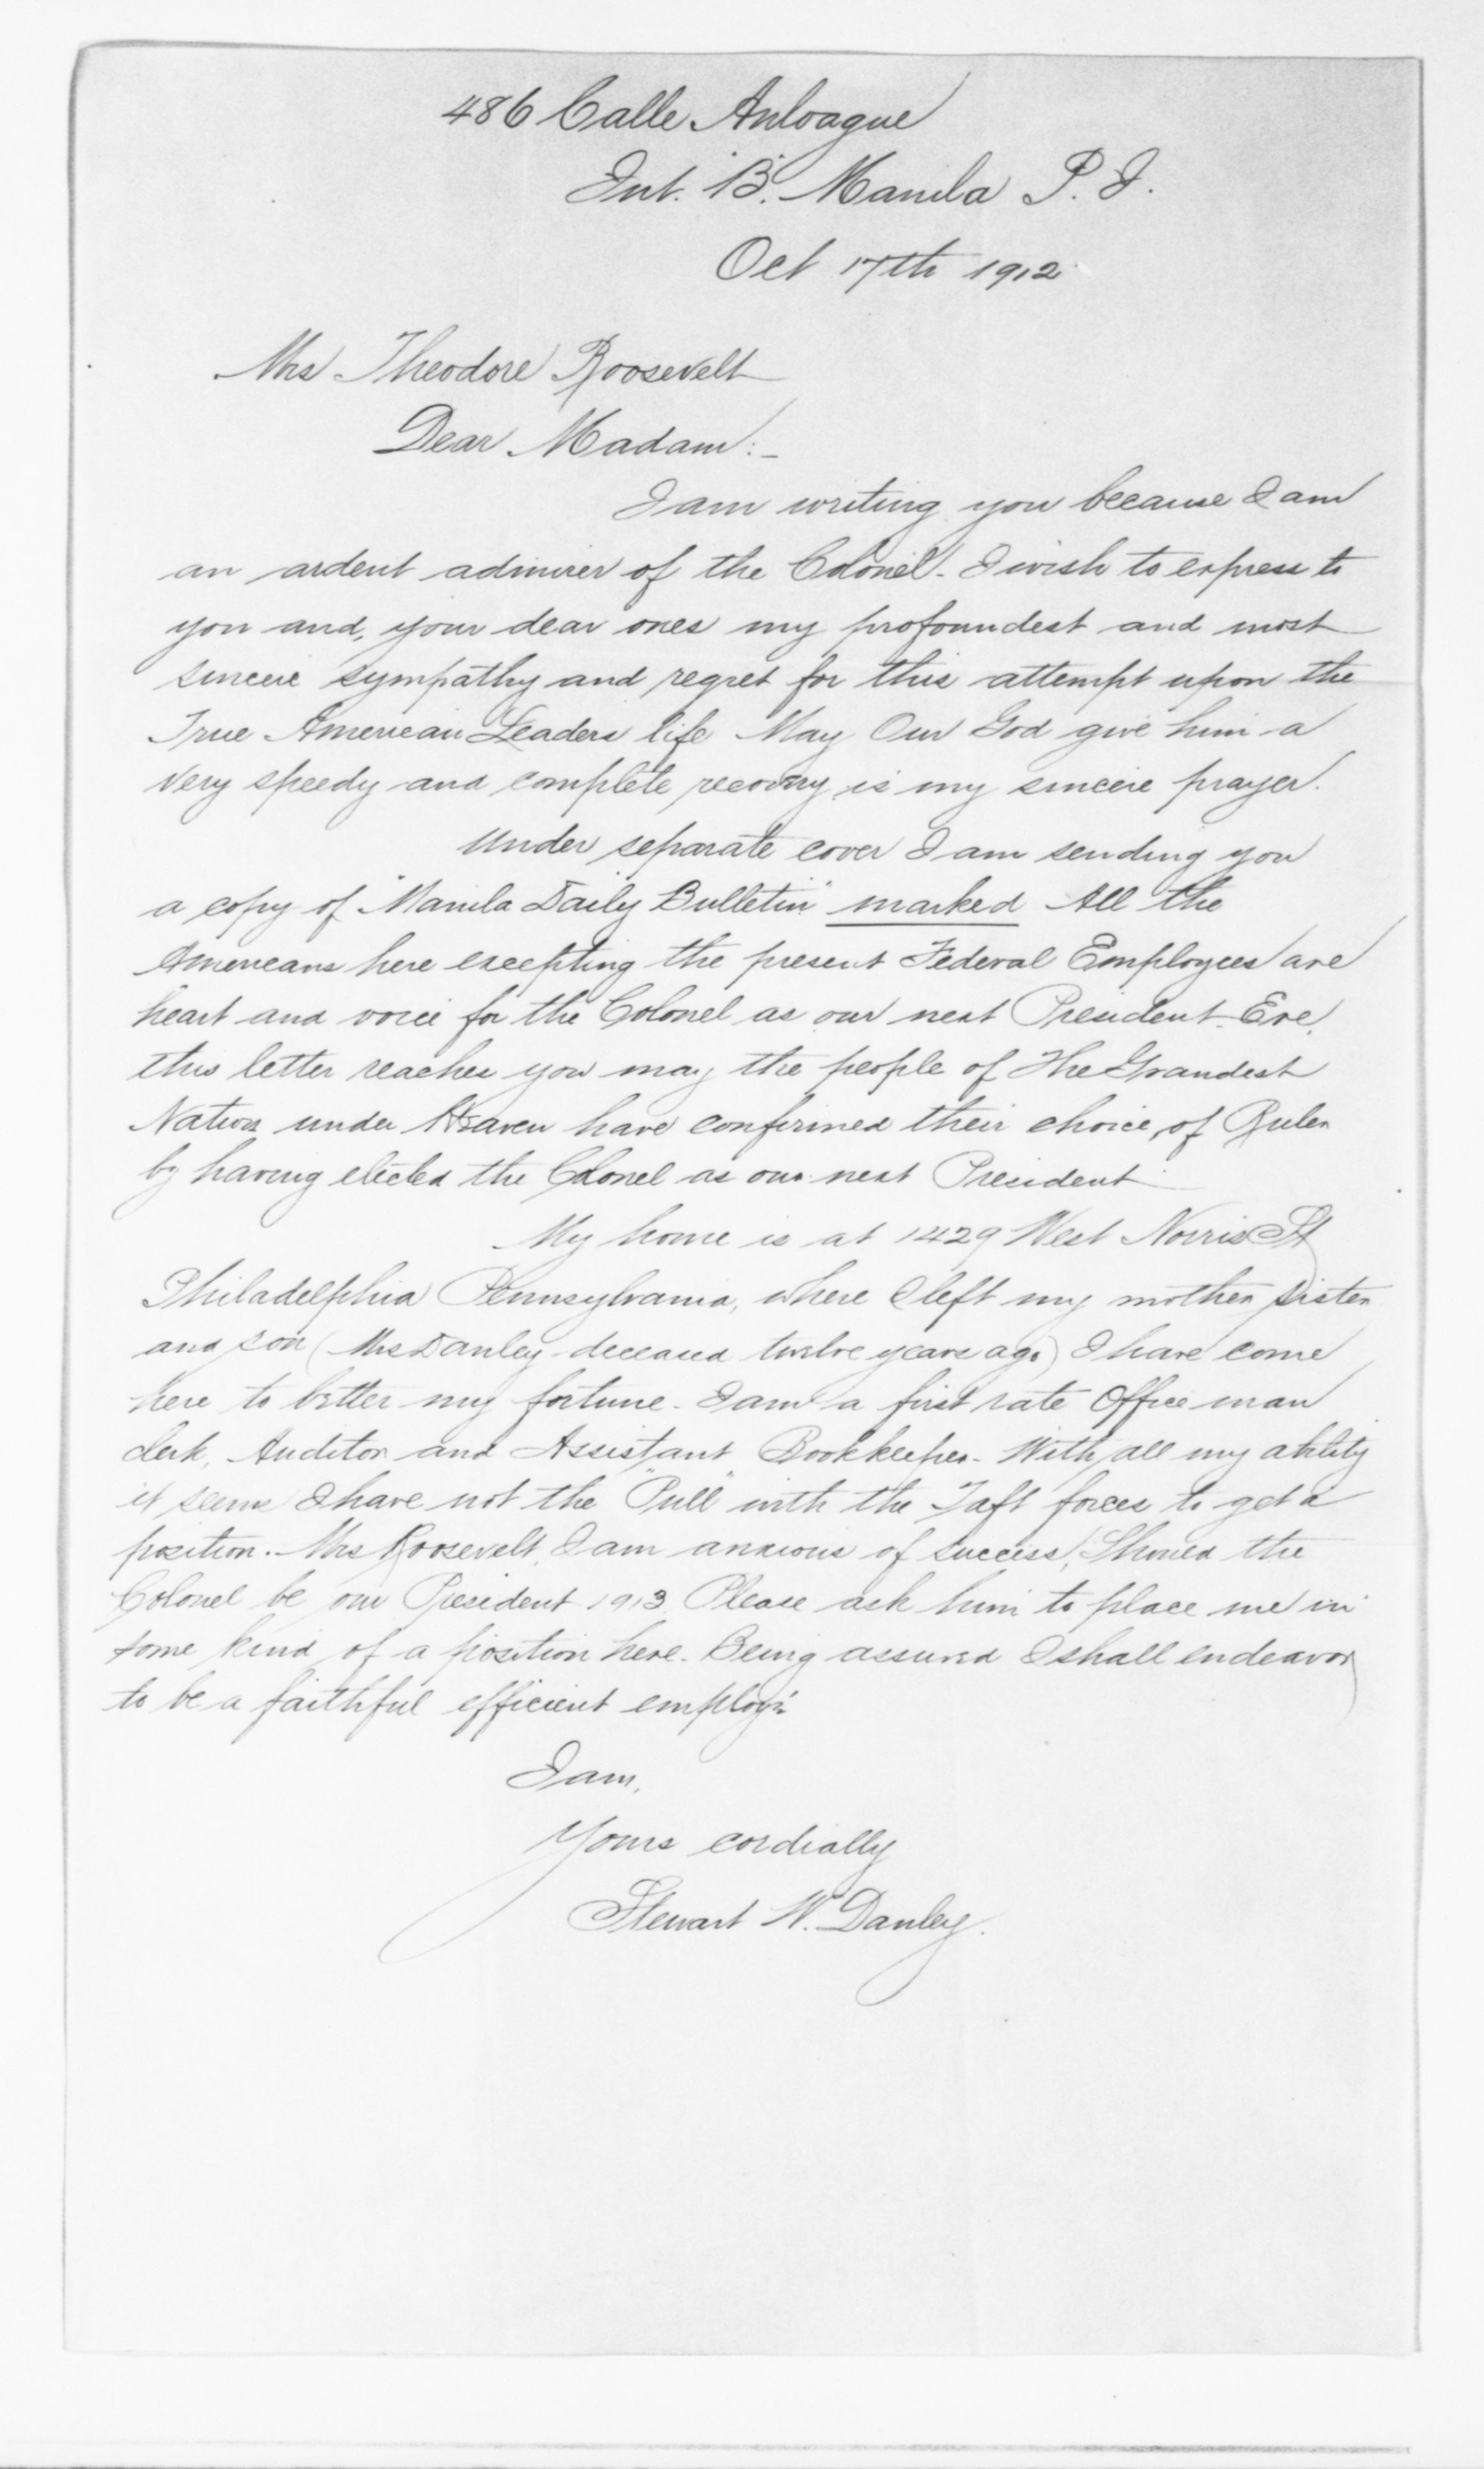 486 Calle Anloague
Int. "B". Manila P. I.
Oct 17th 1912
Mrs Theodore Roosevelt
Dear Madam:-
I am writing you because I am
an ardent admirer of the Colonel. I wish to express to
you and, your dear ones my profoundest and most
sincere sympathy and regret for this attempt upon the
True American Leaders life May Our God give him a
very speedy and complete recovery is my sincere prayer.
Under separate cover I am sending you
a copy of "Manila Daily Bulletin" marked All the
Americans here excepting the present Federal Employees are
heart and voice for the Colonel as our next President. Ere
this letter reaches you may the people of The Grandest
Nation under Heaven have confirmed their choice of Ruler
by having elected the Colonel as our next President
My home is at 1429 West Norris St
Philadelphia Pennsylvania, where I left my mother sister
and son (Mrs Danley deceased twelve years ago) I have come
here to better my fortune. I am a first rate Office man
clerk, Auditor and Assistant Bookkeeper. With all my ability
it seems I have not the "Pull" with the Taft forces to get a
position. Mrs Roosevelt, I am anxious of success, Should the
Colonel be our President 1913. Please ask him to place me in
some kind of a position here. Being assured I shall endeavor
to be a faithful efficient
I am,
Yours cordially
Stewart W. Danley.